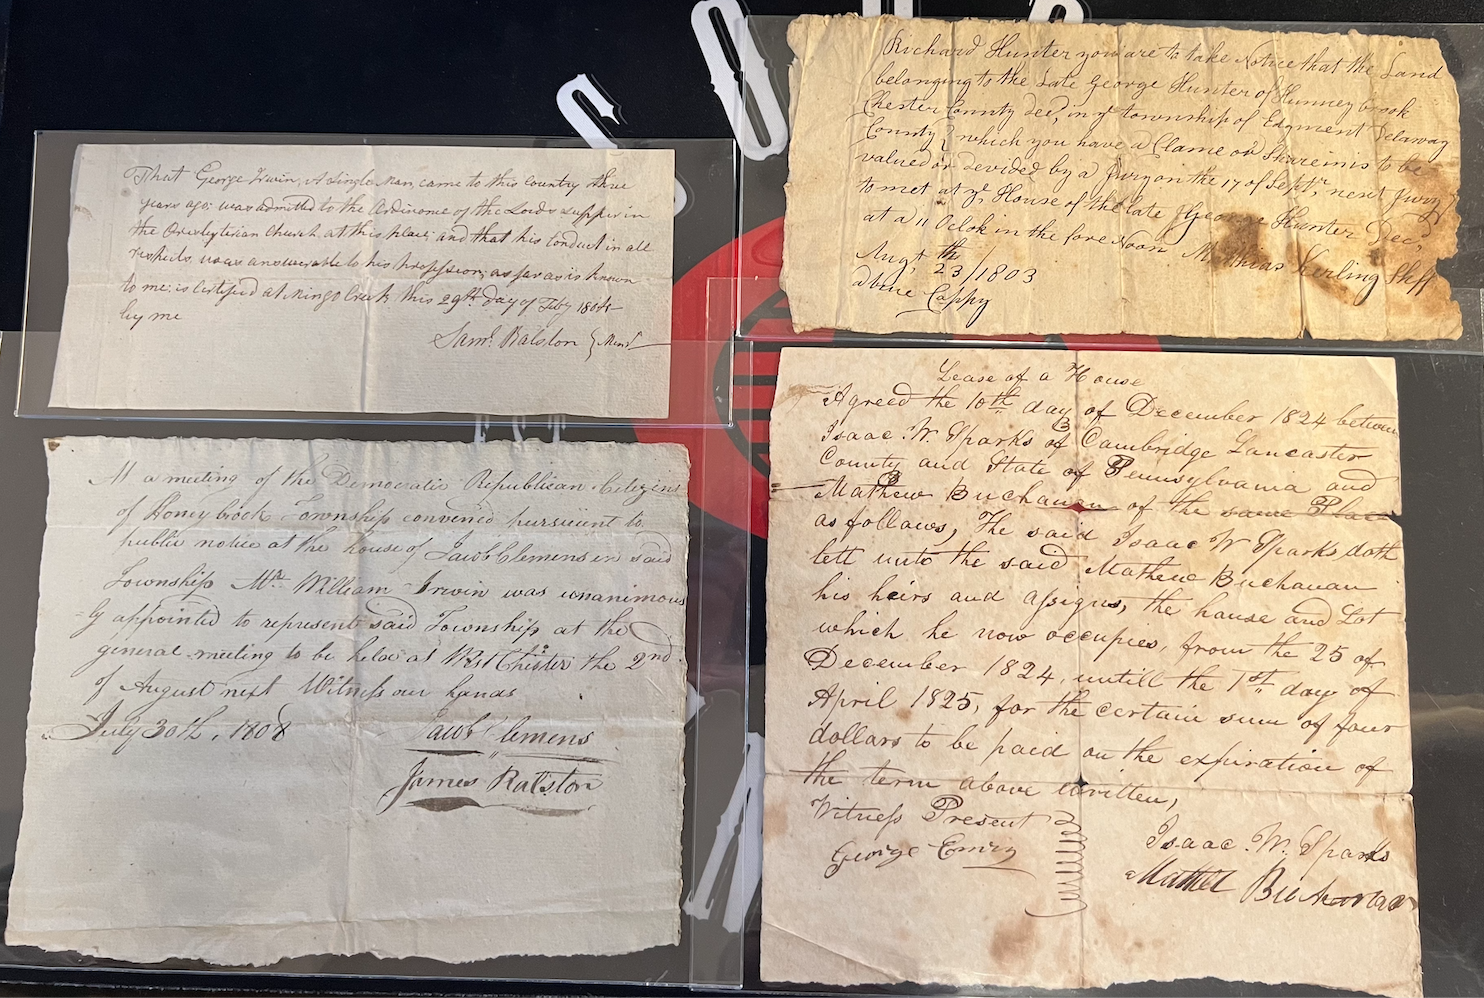 That George Irwin, A single Man, came to this country three
years ago; was admitted to the Ordinance of the Lords supper in
the Presbyterian Church at this place; and that his Conduct in all
respects, was answerable to his profession; as far as is known
to me; is Certified at Mingo Creek this 29th day of Feby 1804
by me
Saml. Ralston } Minr
Richard Hunter you are to take Notice that the Land
belonging to the Late George Hunter of Hunneybrook
Chester County Decd, in ye township of Edgment Delaway
County } which you have a Clame or Share in is to be
valued or devided by a Jury on the 17 of Septr. next Jury
to met at ye House of the late George Hunter Decd,
at a 11 Oclok in the fore Noon. Mathias Kerling Shff
Augt th 23/1803
above Cappy
At a meeting of the Democratic Republican Citizens
of Honeybrook Township convened pursuent to
public notice at the house of Jacob Clemens in said
Township Mr. William Irwin was unanimous
=ly appointed to represent said Township at the
general meeting to be held at West Chester the 2nd
of August next Witness our hands
July 30th, 1808
Jacob Clemens
James Ralston
Lease of a House
Agreed the 10th day of December 1824 between
Isaac W. Sparks of Cambridge Lancaster
County and State of Pennsylvania and
Mathew Buchanan of the same Place
as follows, The said Isaac W Sparks doth
lett unto the said Mathew Buchanan
his heirs and assigns, the house and Lot
which he now occupies, from the 25 of
December 1824, untill the 1st day of
April 1825, for the certain sum of four
dollars to be paid on the expiration of
the term above written,
Witness Present
George Emery
Isaac W. Sparks
Mathew Buchanan